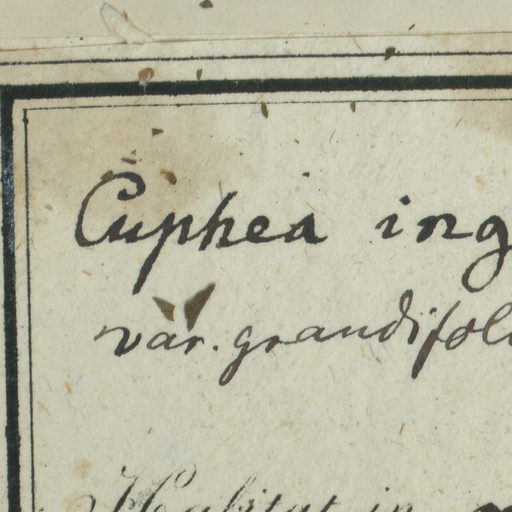 Cuphea ing
var. grandifoli
Habitat in